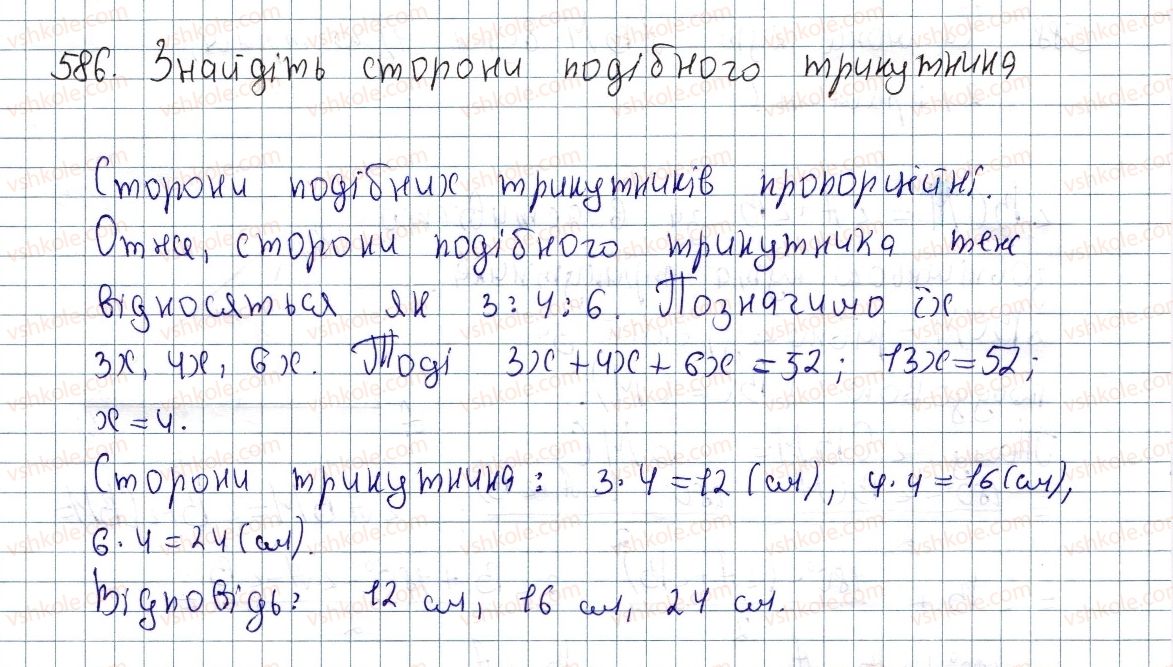 586. Знайдіть сторони подібного трикутника
Сторони подібних трикутників пропорційні.
Отже, сторони подібного трикутника теж
відносяться як 3:4:6. Позначимо їх
3x, 4x, 6x. Тоді 3x + 4x + 6x = 52; 13x = 52;
x = 4.
Сторони трикутника: 3·4 = 12 (см), 4·4 = 16 (см),
6·4 = 24 (см).
Відповідь: 12 см, 16 см, 24 см.